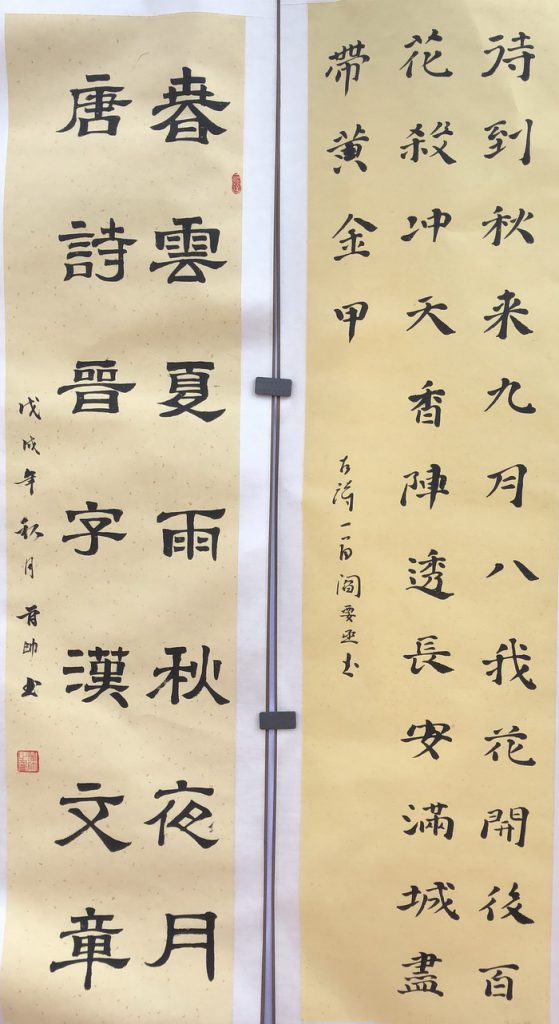 待到秋来九月八我花開後百
花殺冲天香陣透長安滿城盡
帶黄金甲
古詩一首閻要書
春雲夏雨秋夜月
唐詩晉字漢文章
戊戌年秋月帥書